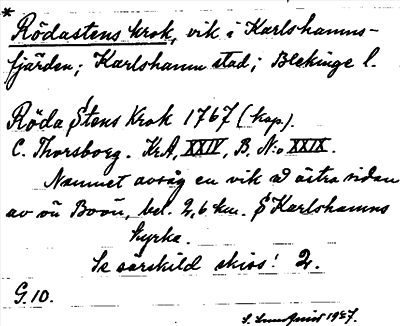 * Rödastens krok, vik i Karlshamns-
fjärden; Karlshamn stad; Blekinge l.
Röda Stens Krok 1767 (kop.).
C. Thorsborg. KrA, XXIV, B, No XXIX.
Namnet avsåg en vik å östra sidan
av ön Boön, bel. 2,6 km. S Karlshamns
kyrka.
Se särskild skiss! 2.
G. 10.
1927.